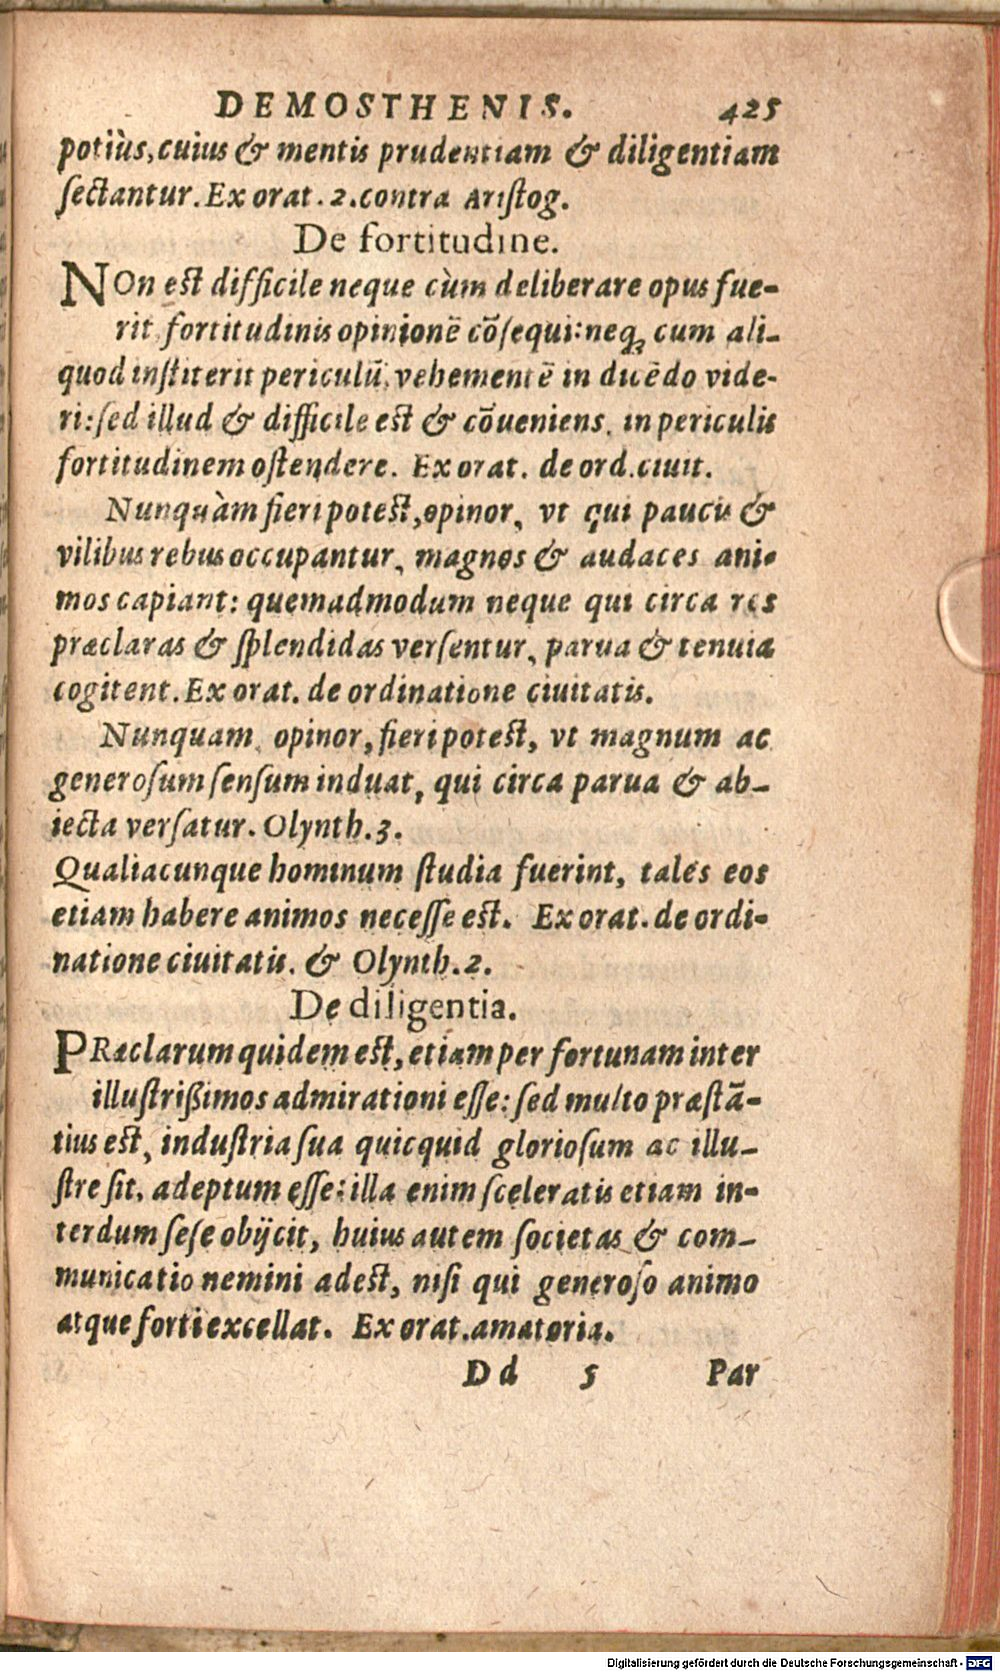 DEMOSTHENIS. 425
potiùs, cuius & mentis prudentiam & diligentiam
sectantur. Ex orat. 2. contra Aristog.
De fortitudine.
NOn est difficile neque cùm deliberare opus fue-
rit fortitudinis opinionē cōsequi: neq; cum ali-
quod institerit periculū, vehementē in dicēdo vide-
ri: sed illud & difficile est & cōueniens, in periculis
fortitudinem ostendere. Ex orat. de ord. ciuit.
Nunquàm fieri potest, opinor, vt qui paucis &
vilibus rebus occupantur, magnos & audaces ani-
mos capiant: quemadmodum neque qui circa res
præclaras & splendidas versentur, parua & tenuia
cogitent. Ex orat. de ordinatione ciuitatis.
Nunquam, opinor, fieri potest, vt magnum ac
generosum sensum induat, qui circa parua & ab-
iecta versatur. Olynth. 3.
Qualiacunque hominum studia fuerint, tales eos
etiam habere animos necesse est. Ex orat. de ordi-
natione ciuitatis. & Olynth. 2.
De diligentia.
PRæclarum quidem est, etiam per fortunam inter
illustrißimos admirationi esse: sed multo præstā-
tius est, industria sua quicquid gloriosum ac illu-
stre sit, adeptum esse: illa enim sceleratis etiam in-
terdum sese obijcit, huius autem societas & com-
municatio nemini adest, nisi qui generoso animo
atque forti excellat. Ex orat. amatoria.
Dd 5 Par
Digitalisierung gefördert durch die Deutsche Forschungsgemeinschaft - DFG